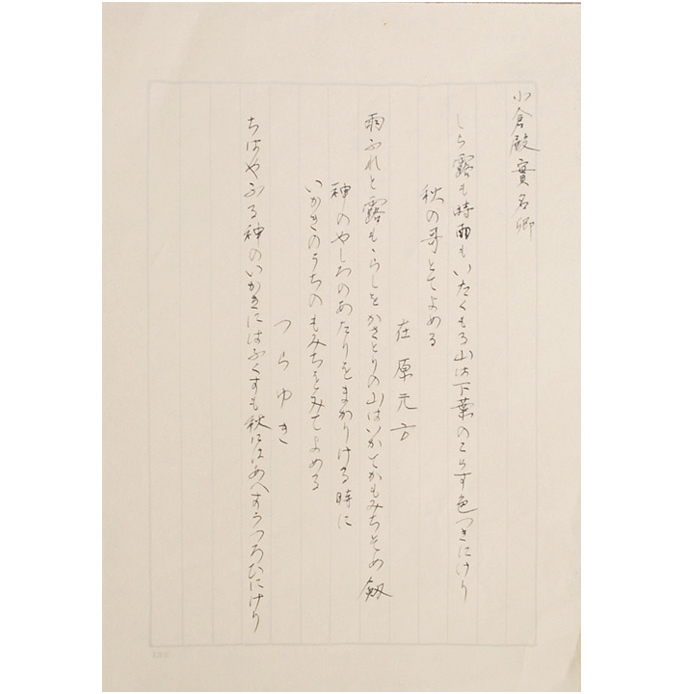 小倉殿實名卿
しら露も時雨もいたくもる山は下葉のこらす色つきにけり
秋の哥とてよめる
在原元方
雨ふれと露もゝらしをかさとりの山はいかてかもみちそめ剱
神のやしろのあたりをまかりける時に
いかきのうちのもみちをみてよめる
つらゆき
ちはやふる神のいかきにはふくすも秋にはあへすうつろひにけり